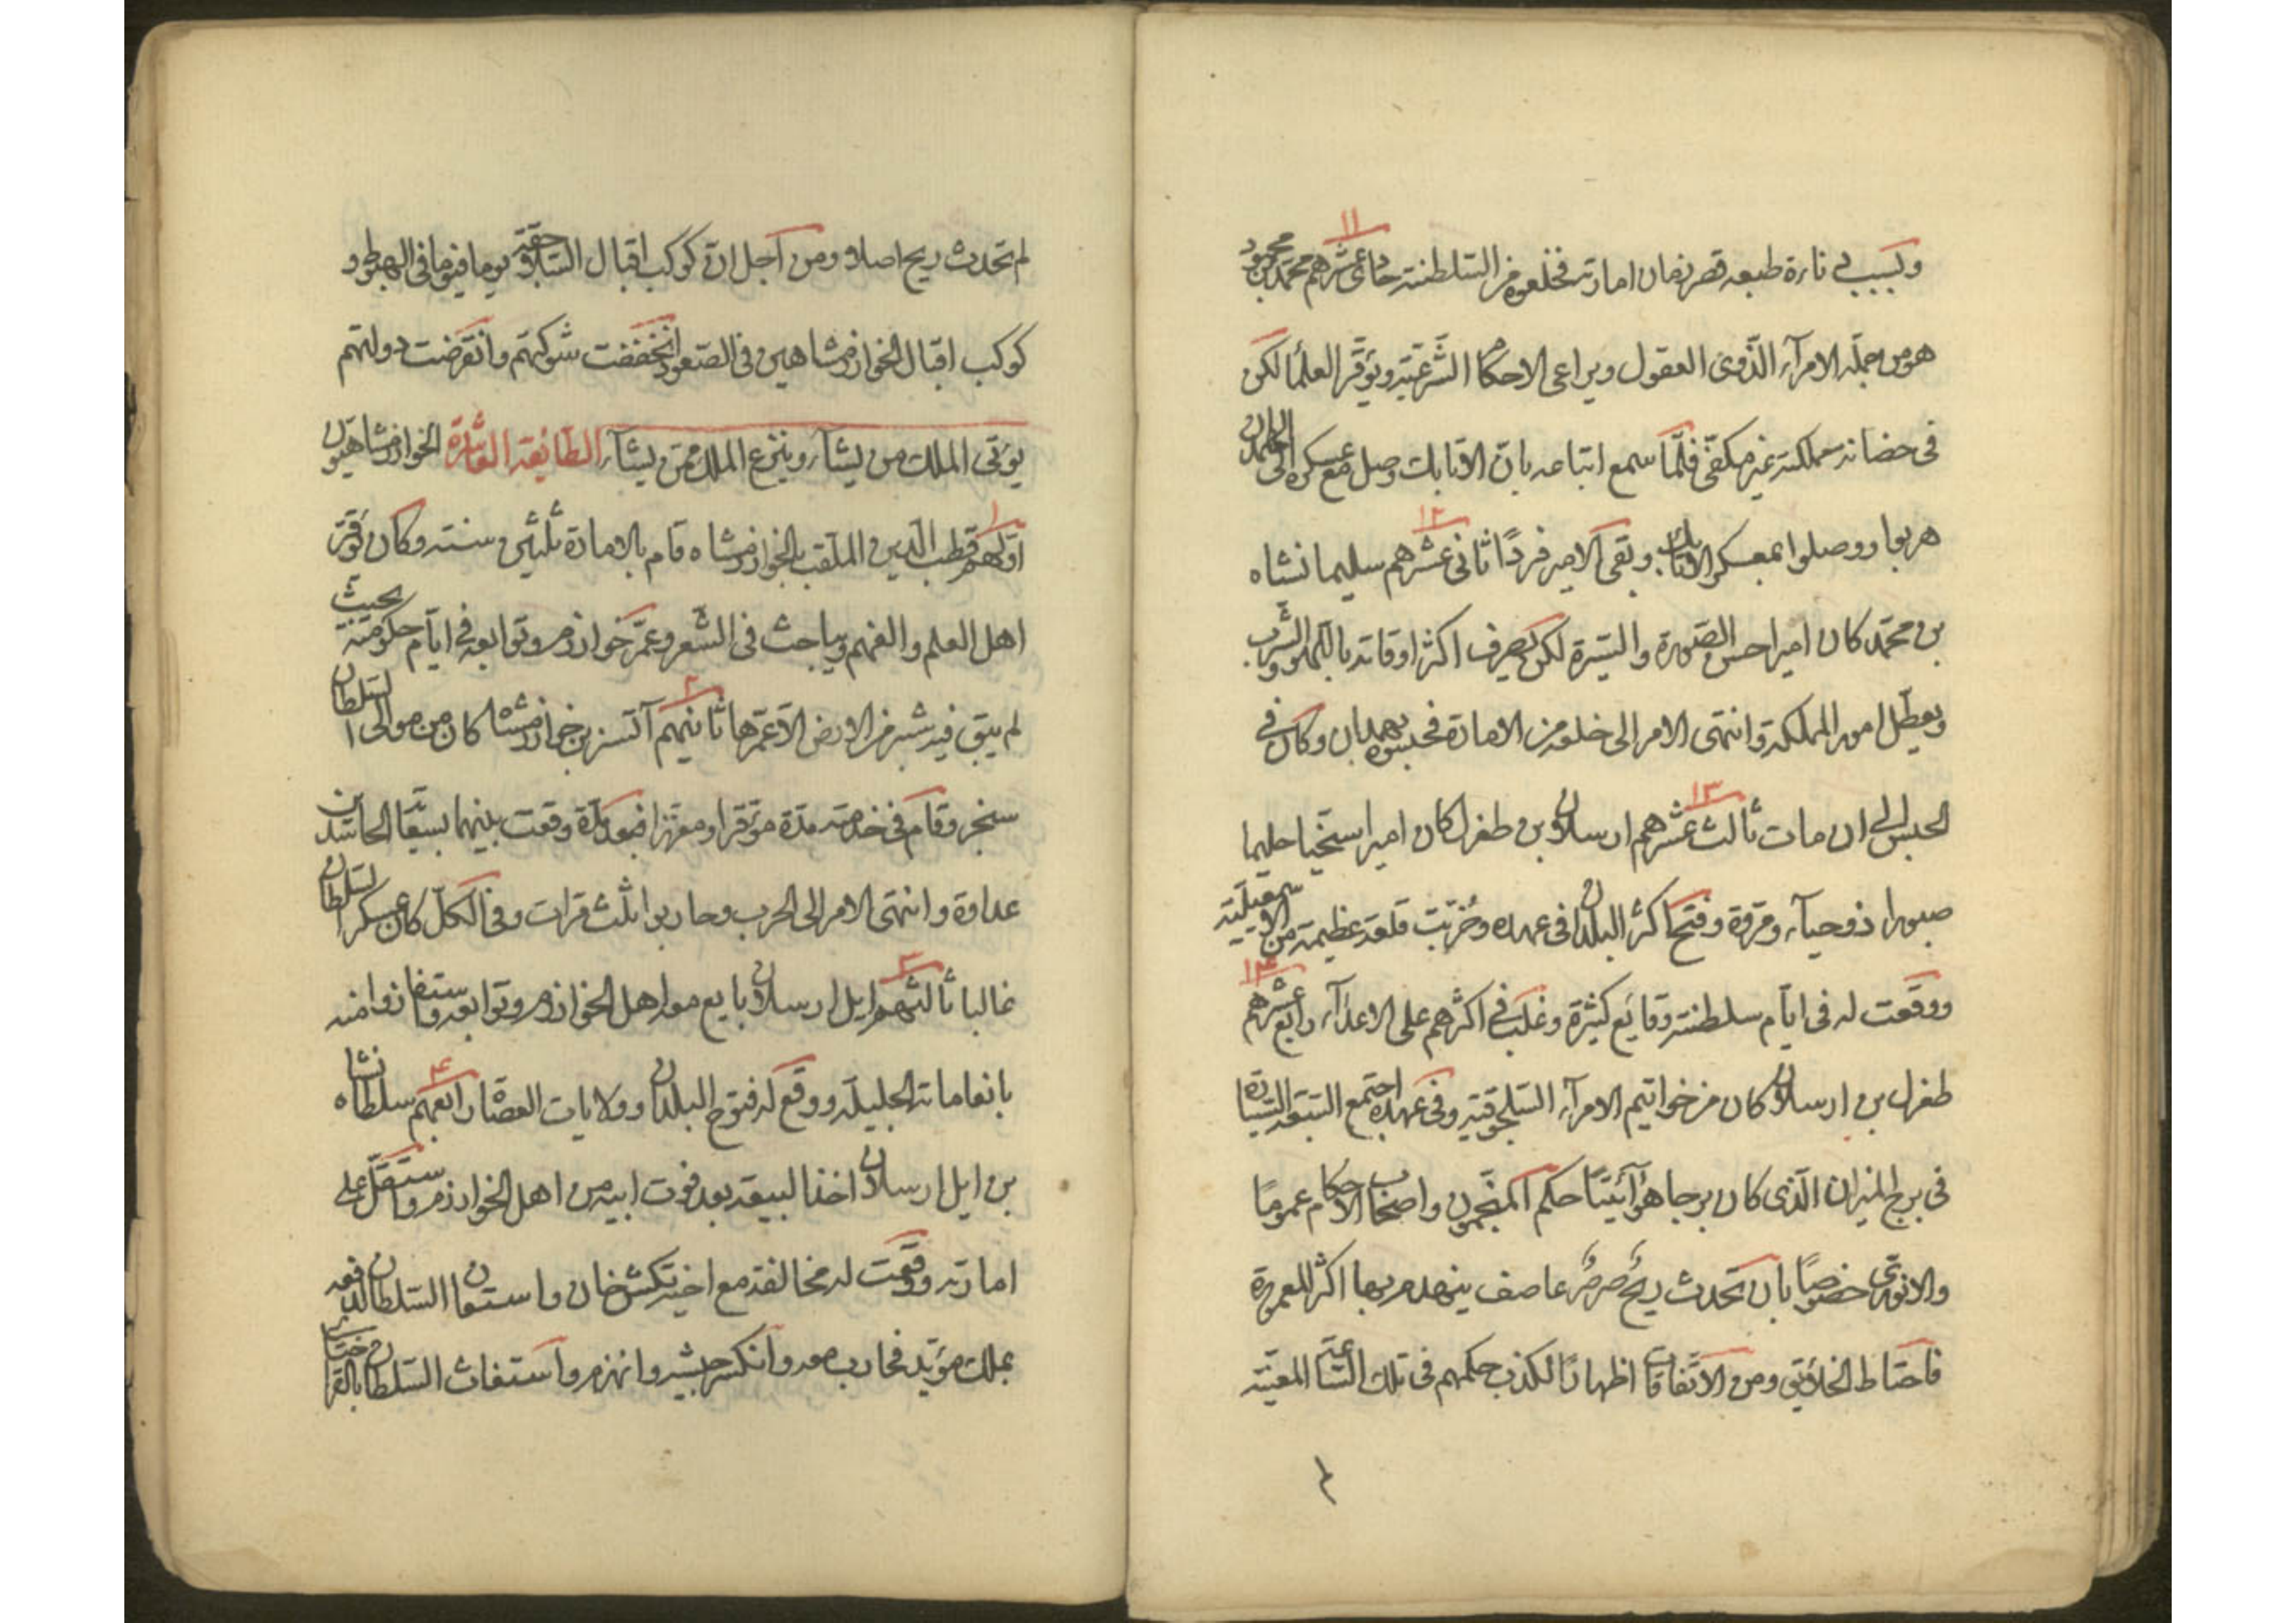 ١١
وبسبب نارة طبعه قصر زمان امارته فخلعوه من السلطنة حادى عشرهم محمد بن محمود
هو من جملة الامرآء الذوى العقول ويراعى الاحكام الشرعية ويوقر العلمآ لكن
فى حضانة مملكته غير مكفى فلما سمع اتباعه بان الاتابك وصل مع عسكره الى
١٢
هربوا ووصلوا بمعسكر الاتابك وبقى الامير فردًا ثانى عشرهم سليمانشاه
بن محمد كان اميرا حسن الصورة والسيرة لكن يصرف اكثر اوقاته باللهو والشرب
ويعطل امور المملكة وانتهى الامر الى خلعه من الامارة فحبسوه بهمدان وكان فى
١٣
الحبس الى ان مات ثالث عشرهم ارسلان بن طغرل كان اميرا سخيا حليما
صبورا ذو حيآء ومروة وفتح اكثر البلدان فى عهده وخربت قلعة عظيمة من
١٤
ووقعت له فى ايام سلطنته وقايع كثيرة وغلب فى اكثرهم على الاعدآء رابع عشرهم
طغرل بن ارسلان كان من خواتيم الامرآء السلجوقية وفى عهده اجتمع السبعة السيارة
فى برج الميزان الذى كان برجا هوآئيتًا حكم المنجمون واصحاب الاحكام عمومًا
والانورى خصوصًا بان تحدث ريح صرصر عاصف ينهدم بها اكثر المعمورة
فاحتاط الخلائق ومن الاتفاقات اظهارًا لكذب حكمهم فى تلك الساعة المعينة
لم
لم تحدث ريح اصلا ومن اجل ان كوكب اقبال السلاجقة يوما فيوما فى الهبوط و
كوكب اقبال الخوارزمشاهين فى الصعود انخفضت شوكتهم وانقرضت دولتهم
يؤتى الملك من يشآء وينزع الملك ممن يشآء الطائفة العاشرة الخوارزمشاهيون
١
اولهم قطب الدين الملقب بالخوارزمشاه قام بالامارة ثلثين سنة وكان يوقر
اهل العلم والفهم ويباحث فى الشعر وعمر خوارزم وتوابعه فى ايام حكومته بحيث
٢
لم يبق فيه شبر من الارض الا عمرها ثانيهم آتسز بن خوارزمشاه كان من موالى السلطان
سنجر وقام فى خدمته مدة موقرا ومعززا فبعد مدة وقعت بينهما بسعاية الحاسدين
عداوة وانتهى الامر الى الحرب وحاربوا ثلث مرات وفى الكل كان عسكر السلطان
٣
غالبا ثالثهم ايل ارسلان بايع معه اهل الخوارزم وتوابعه واستفازوا منه
٤
بانعاماته الجليلة ووقع له فتوح البلدان وولايات العصاة رابعهم سلطانشاه
بن ايل ارسلان اخذ البيعة بعد فوت ابيه من اهل الخوارزم واستقل على
امارته ووقعت له مخالفة مع اخيه تكش خان واستعان السلطان لدفعه
بملك مؤيد فحارب معه وانكسر جيشه وانهزم واستغاث السلطان